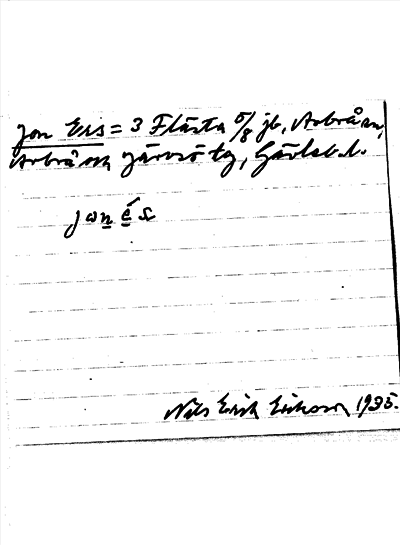 Jon Ers = 3 Flästa 5/8 jb, Arbrå sn,
Arbrå och Järvsö tg, Gävleb. l.
jonés
Nils Erik Eriksson 1935.